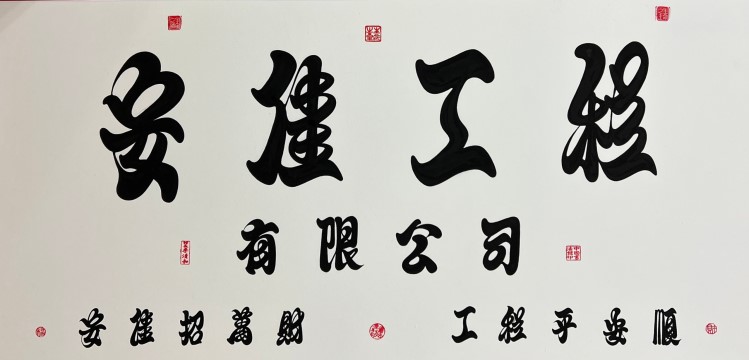 安佳工程
有限公司
安佳招萬財 工程平安順